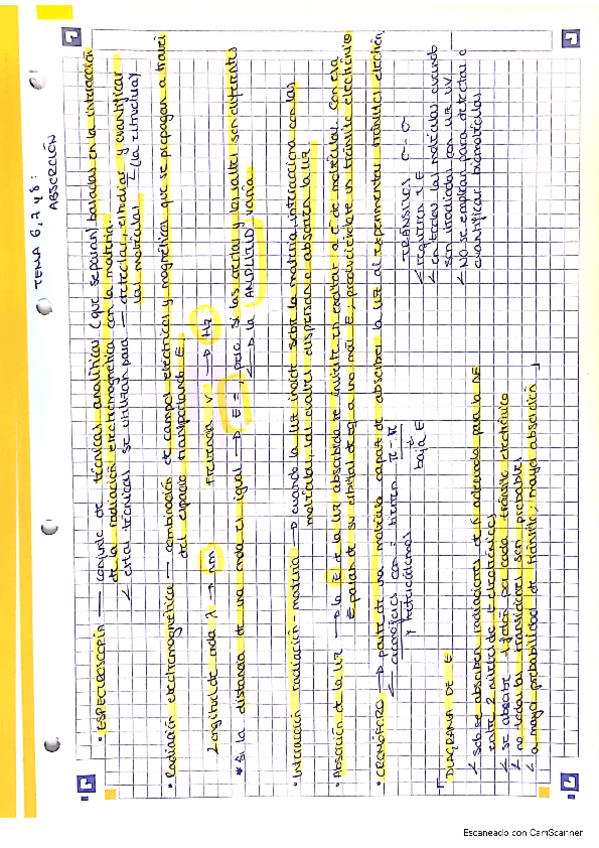 TEMA 6, 7 y 8:
ABSORCIÓN
• ESPECTROSCOPÍA — conjunto de técnicas analíticas (que separan) basadas en la interacción
de la radiación electromagnética con la materia.
estas técnicas se utilizan para — detectar, estudiar y cuantificar
las moléculas (la estructura)
• Radiación electromagnética — combinación de campos eléctricos y magnéticos que se propagan a través
del espacio transportando E.
Longitud de onda λ → nm Frecuencia ν → Hz
* Si la distancia de una onda es igual → E =, pero si las crestas y los valles son diferentes
→ la AMPLITUD varía
• Interacción radiación - materia → cuando la luz incide sobre la materia interacciona con las
moléculas, las cuales dispersan o absorben la luz.
• Absorción de la luz → la E de la luz absorbida se invierte en excitar a e⁻ de moléculas. Con esa
E pasan de su orbital de E a uno más E, produciéndose un tránsito electrónico
• CROMÓFORO → parte de una molécula capaz de absorber la luz al experimentar tránsitos electrón.
cromóforos con: tienen π - π*
y heteroátomos
baja E
TRÁNSITOS σ - σ
requieren ↑ E
en todas las moléculas cuando
son irradiadas con luz UV
NO se emplean para detectar o
cuantificar biomoléculas
DIAGRAMA DE E
solo se absorben radiaciones de λ adecuada para la ΔE
entre 2 niveles de E electrónicos
se absorbe λ fijada por cada tránsito electrónico
no todas las transiciones son probables
a mayor probabilidad de tránsito, mayor absorción
Escaneado con CamScanner